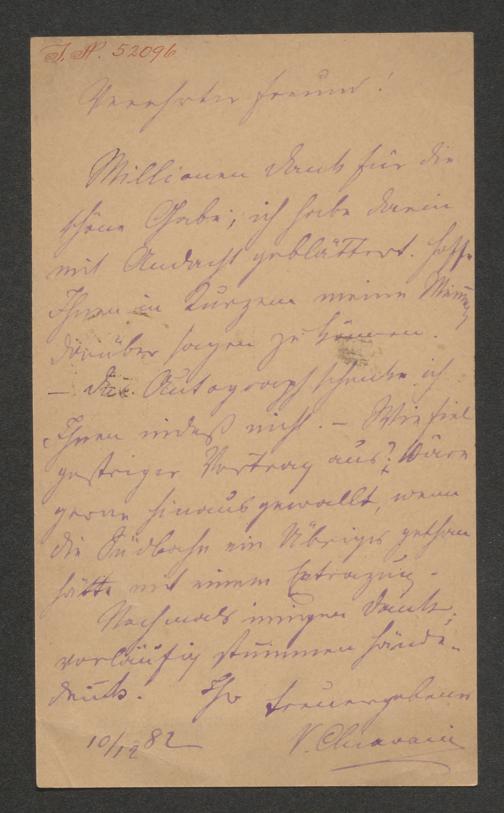 J. N. 52096
Verehrter Freund!
Millionen Dank für die
schöne Gabe; ich habe darin
mit Andacht geblättert. Hoffe
Ihnen in Kurzem meine Meinung
darüber sagen zu können.
– Das Autograph schenke ich
Ihnen indeß nicht. – Wie fiel
gestriger Vortrag aus? Wäre
gerne hinausgewallt, wenn
die Südbahn ein Übriges gethan
hätte mit einem Extrazug.
Nochmals innigen Dank,
vorläufig stummen Hände-
druck. Ihr treuergebener
10/12 82 V. Chiavacci